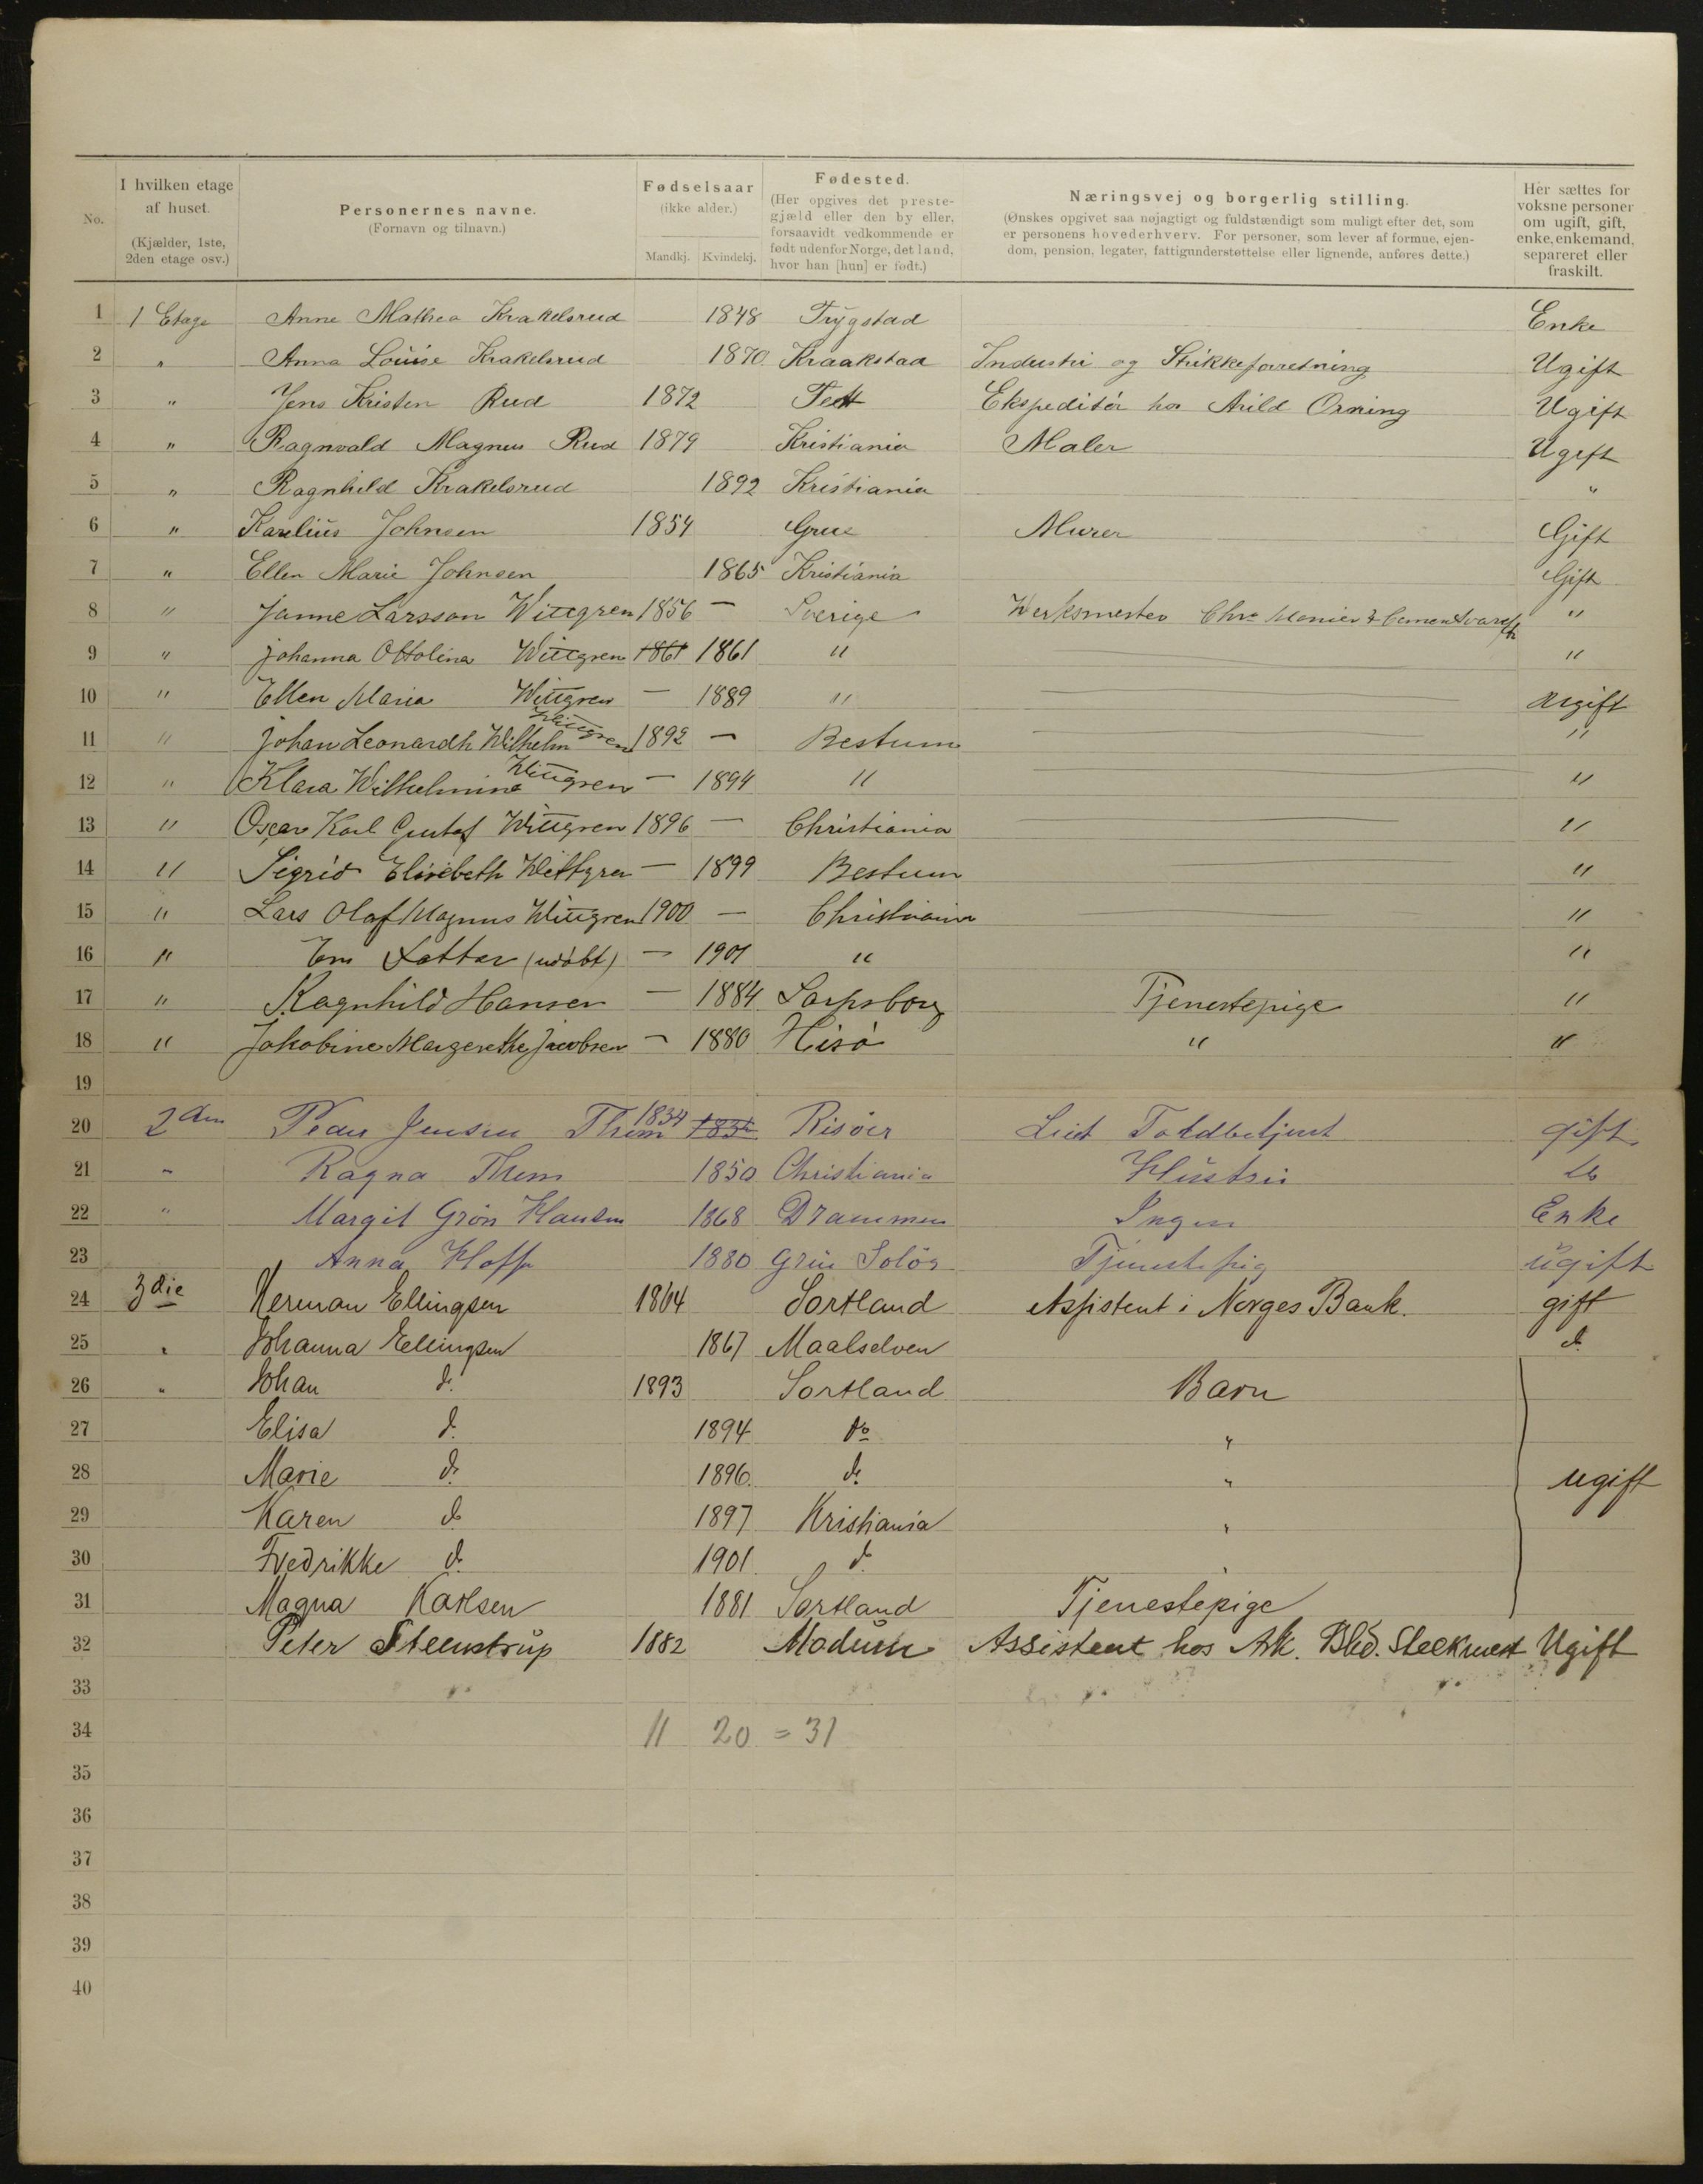 No. I hvilken etage af huset. (Kjælder, 1ste, 2den etage osv.) Personernes navne. (Fornavn og tilnavn.) Fødselsaar (ikke alder.) Mandkj. Kvindekj. Fødested. (Her opgives det prestegjæld eller den by eller, forsaavidt vedkommende er født udenfor Norge, det land, hvor han [hun] er født.) Næringsvej og borgerlig stilling. (Ønskes opgivet saa nøjagtigt og fuldstændigt som muligt efter det, som er personens hovederhverv. For personer, som lever af formue, ejendom, pension, legater, fattigunderstøttelse eller lignende, anføres dette.) Her sættes for voksne personer om ugift, gift, enke, enkemand, separeret eller fraskilt.
1 1 Etage Anne Mathea Krakelsrud 1848 Trygstad Enke
2 " Anna Louise Krakelsrud 1870 Kraakstad Industri og Strikkeforretning Ugift
3 " Jens Kristen Rud 1872 Ekspeditør hos Arild Ugift
4 " Ragnvald Magnus Rud 1879 Kristiania Maler Ugift
5 " Ragnhild Krakelsrud 1892 Kristiania "
6 " Karelius Johnsen 1854 Grue Murer Gift
7 " Ellen Marie Johnsen 1865 Kristiania Gift
8 " Janne Larsson Wittgren 1856 — Sverige Werksmester Chra Monier & Cementvarefb "
9 " Johanna Ottolina Wittgren 1861 1861 " "
10 " Ellen Maria Wittgren — 1889 " Ugift
11 " Johan Leonardh Wilhelm Wittgren 1892 — Bestum "
12 " Klara Wilhelmina Wittgren — 1894 " "
13 " Oscar Karl Gustaf Wittgren 1896 — Christiania "
14 " Sigrid Elisebeth Wittgren — 1899 Bestum "
15 " Lars Olaf Magnus Wittgren 1900 — Christiania "
16 " En Datter (udöbt) — 1901 " "
17 " Ragnhild Hansen — 1884 Sarpsborg Tjenestepige "
18 " Jakobine Margerethe Jacobsen — 1880 Hisö " "
19
20 2den Peder Jensen Them 1834 Risöer Toldbetjent gift
21 " Ragna Them 1850 Christiania Hustru do
22 " Margit Grön Hansen 1868 Drammen Ingen Enke
23 Anna Hoff 1880 Grue Solör Tjenestepig ugift
24 3die Herman Ellingsen 1864 Sortland Assistent i Norges Bank. gift
25 " Johanna Ellingsen 1867 Maalselven do
26 " Johan do 1893 Sortland Barn
27 Elisa do 1894 do "
28 Marie do 1896 do " ugift
29 Karen do 1897 Kristiania "
30 Fredrikke do 1901 do "
31 Magna Karlsen 1881 Sortland Tjenestepige
32 Peter Steenstrup 1882 Modum Assistent hos Ark. Ugift
33
34 11 20 = 31
35
36
37
38
39
40